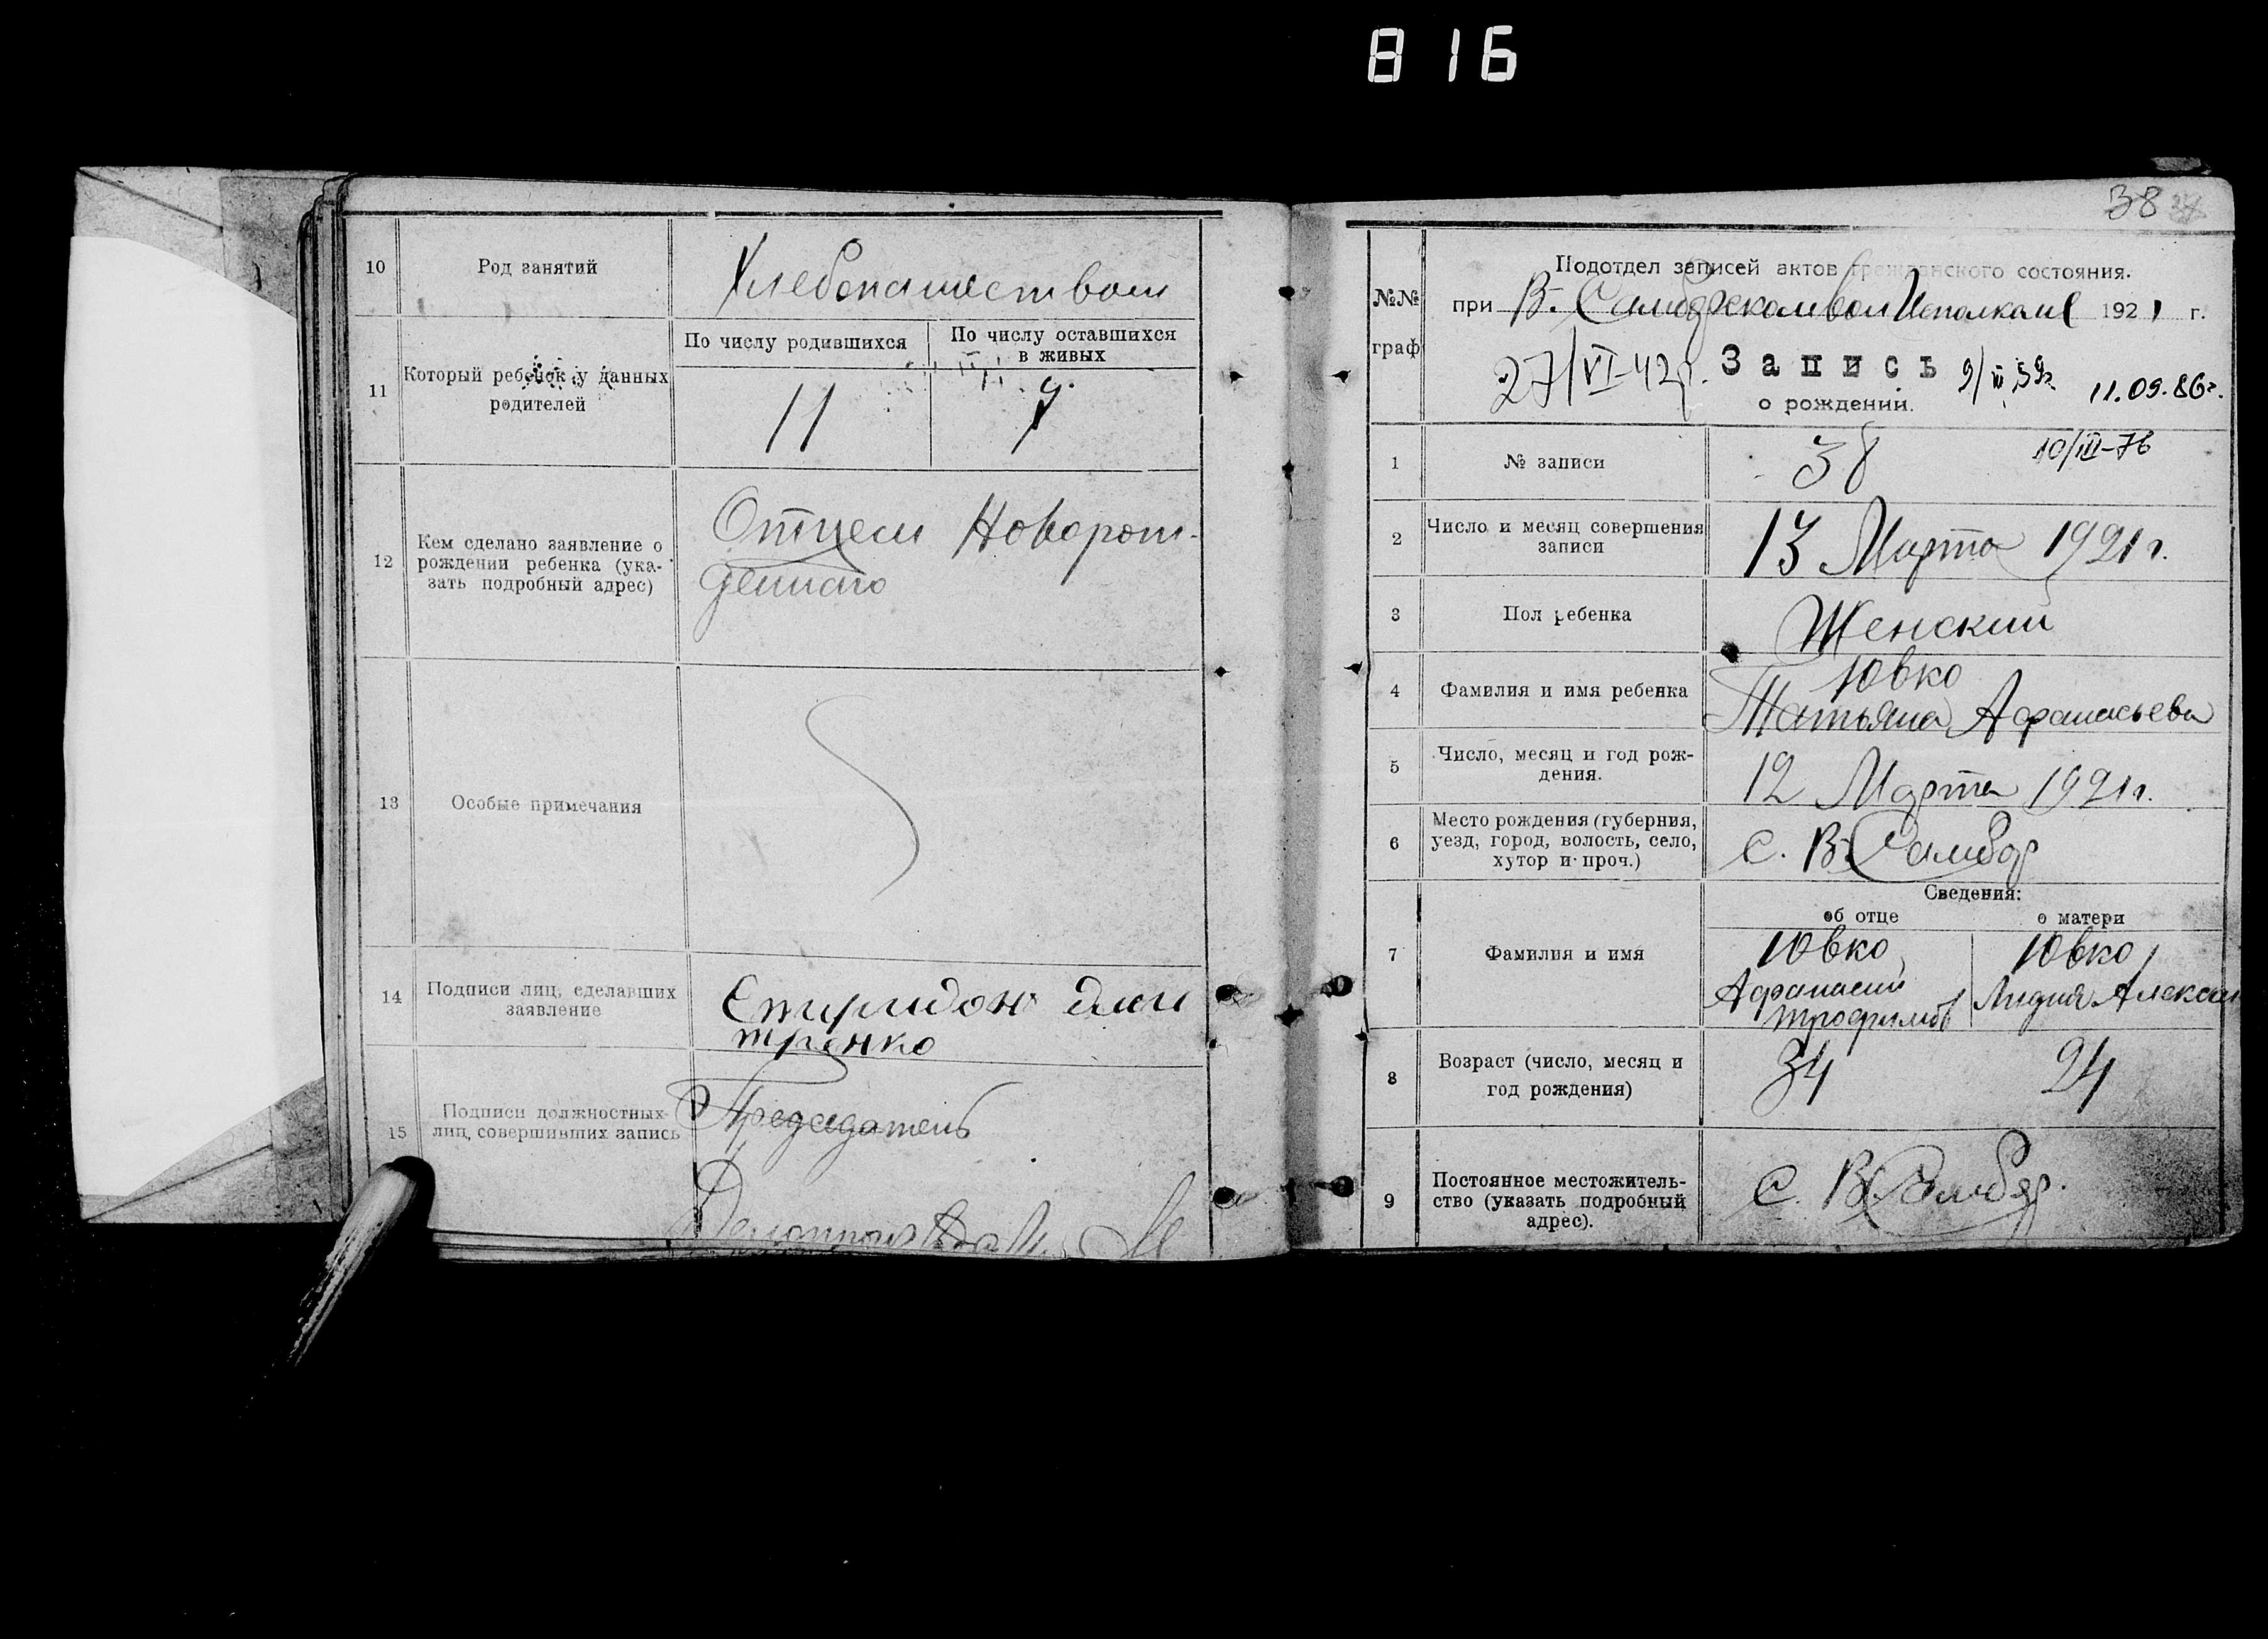 816
10
Род занятий
Хлебопашеством
11
Который ребенок у данных
родителей
По числу родившихся
По числу оставшихся
в живых
11
12
Кем сделано заявление о
рождении ребенка (ука-
зать подробный адрес)
Отцем Новорож-
деннаго
13
Особые примечания
14
Подписи лиц, сделавших
заявление
Спиридон Дми
тренко
15
Подписи должностных
лиц, совершивших запись
Председатель
38
№№
граф
Подотдел записей актов гражданского состояния.
при В. Самборском вол Исполкоме 1921 г.
27/VI-42г. Запись 9/III 59г. 11.09.86г.
о рождении.
1
№ записи
38
10/III-76
2
Число и месяц совершения
записи
13 Марта 1921 г.
3
Пол ребенка
Женский
4
Фамилия и имя ребенка
Ювко
Татьяна Афанасьева
5
Число, месяц и год рож-
дения.
12 Марта 1921 г.
6
Место рождения (губерния,
уезд, город, волость, село,
хутор и проч.)
с. В. Самбор
Сведения:
об отце
о матери
7
Фамилия и имя
Ювко
Афанасий
Трофимов
Ювко
Лидия Алексан
8
Возраст (число, месяц и
год рождения)
34
24
9
Постоянное местожитель-
ство (указать подробный
адрес).
с. В. Самбор.